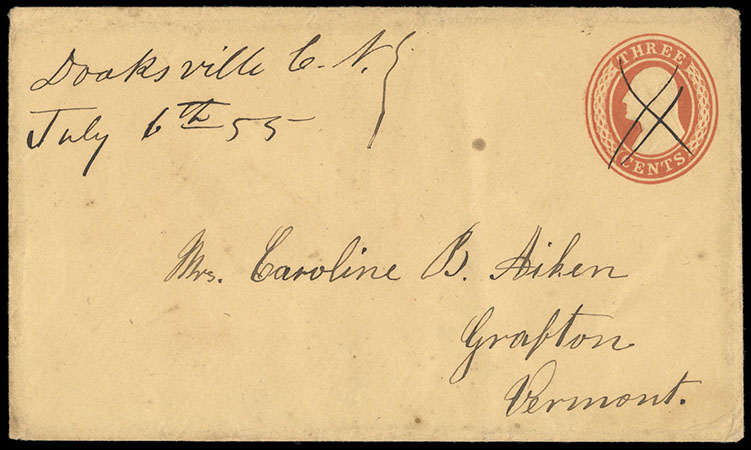 Doaksville C. N.
July 6th 55
THREE
CENTS
Mrs. Caroline B. Aiken
Grafton
Vermont.